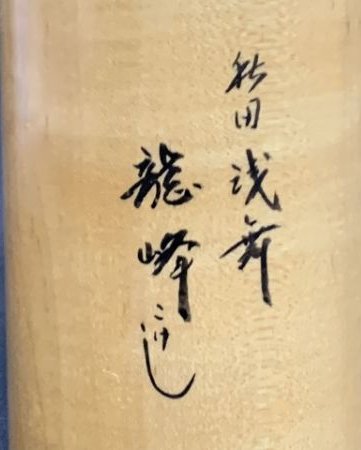 秋田浅舞
龍峰こけし